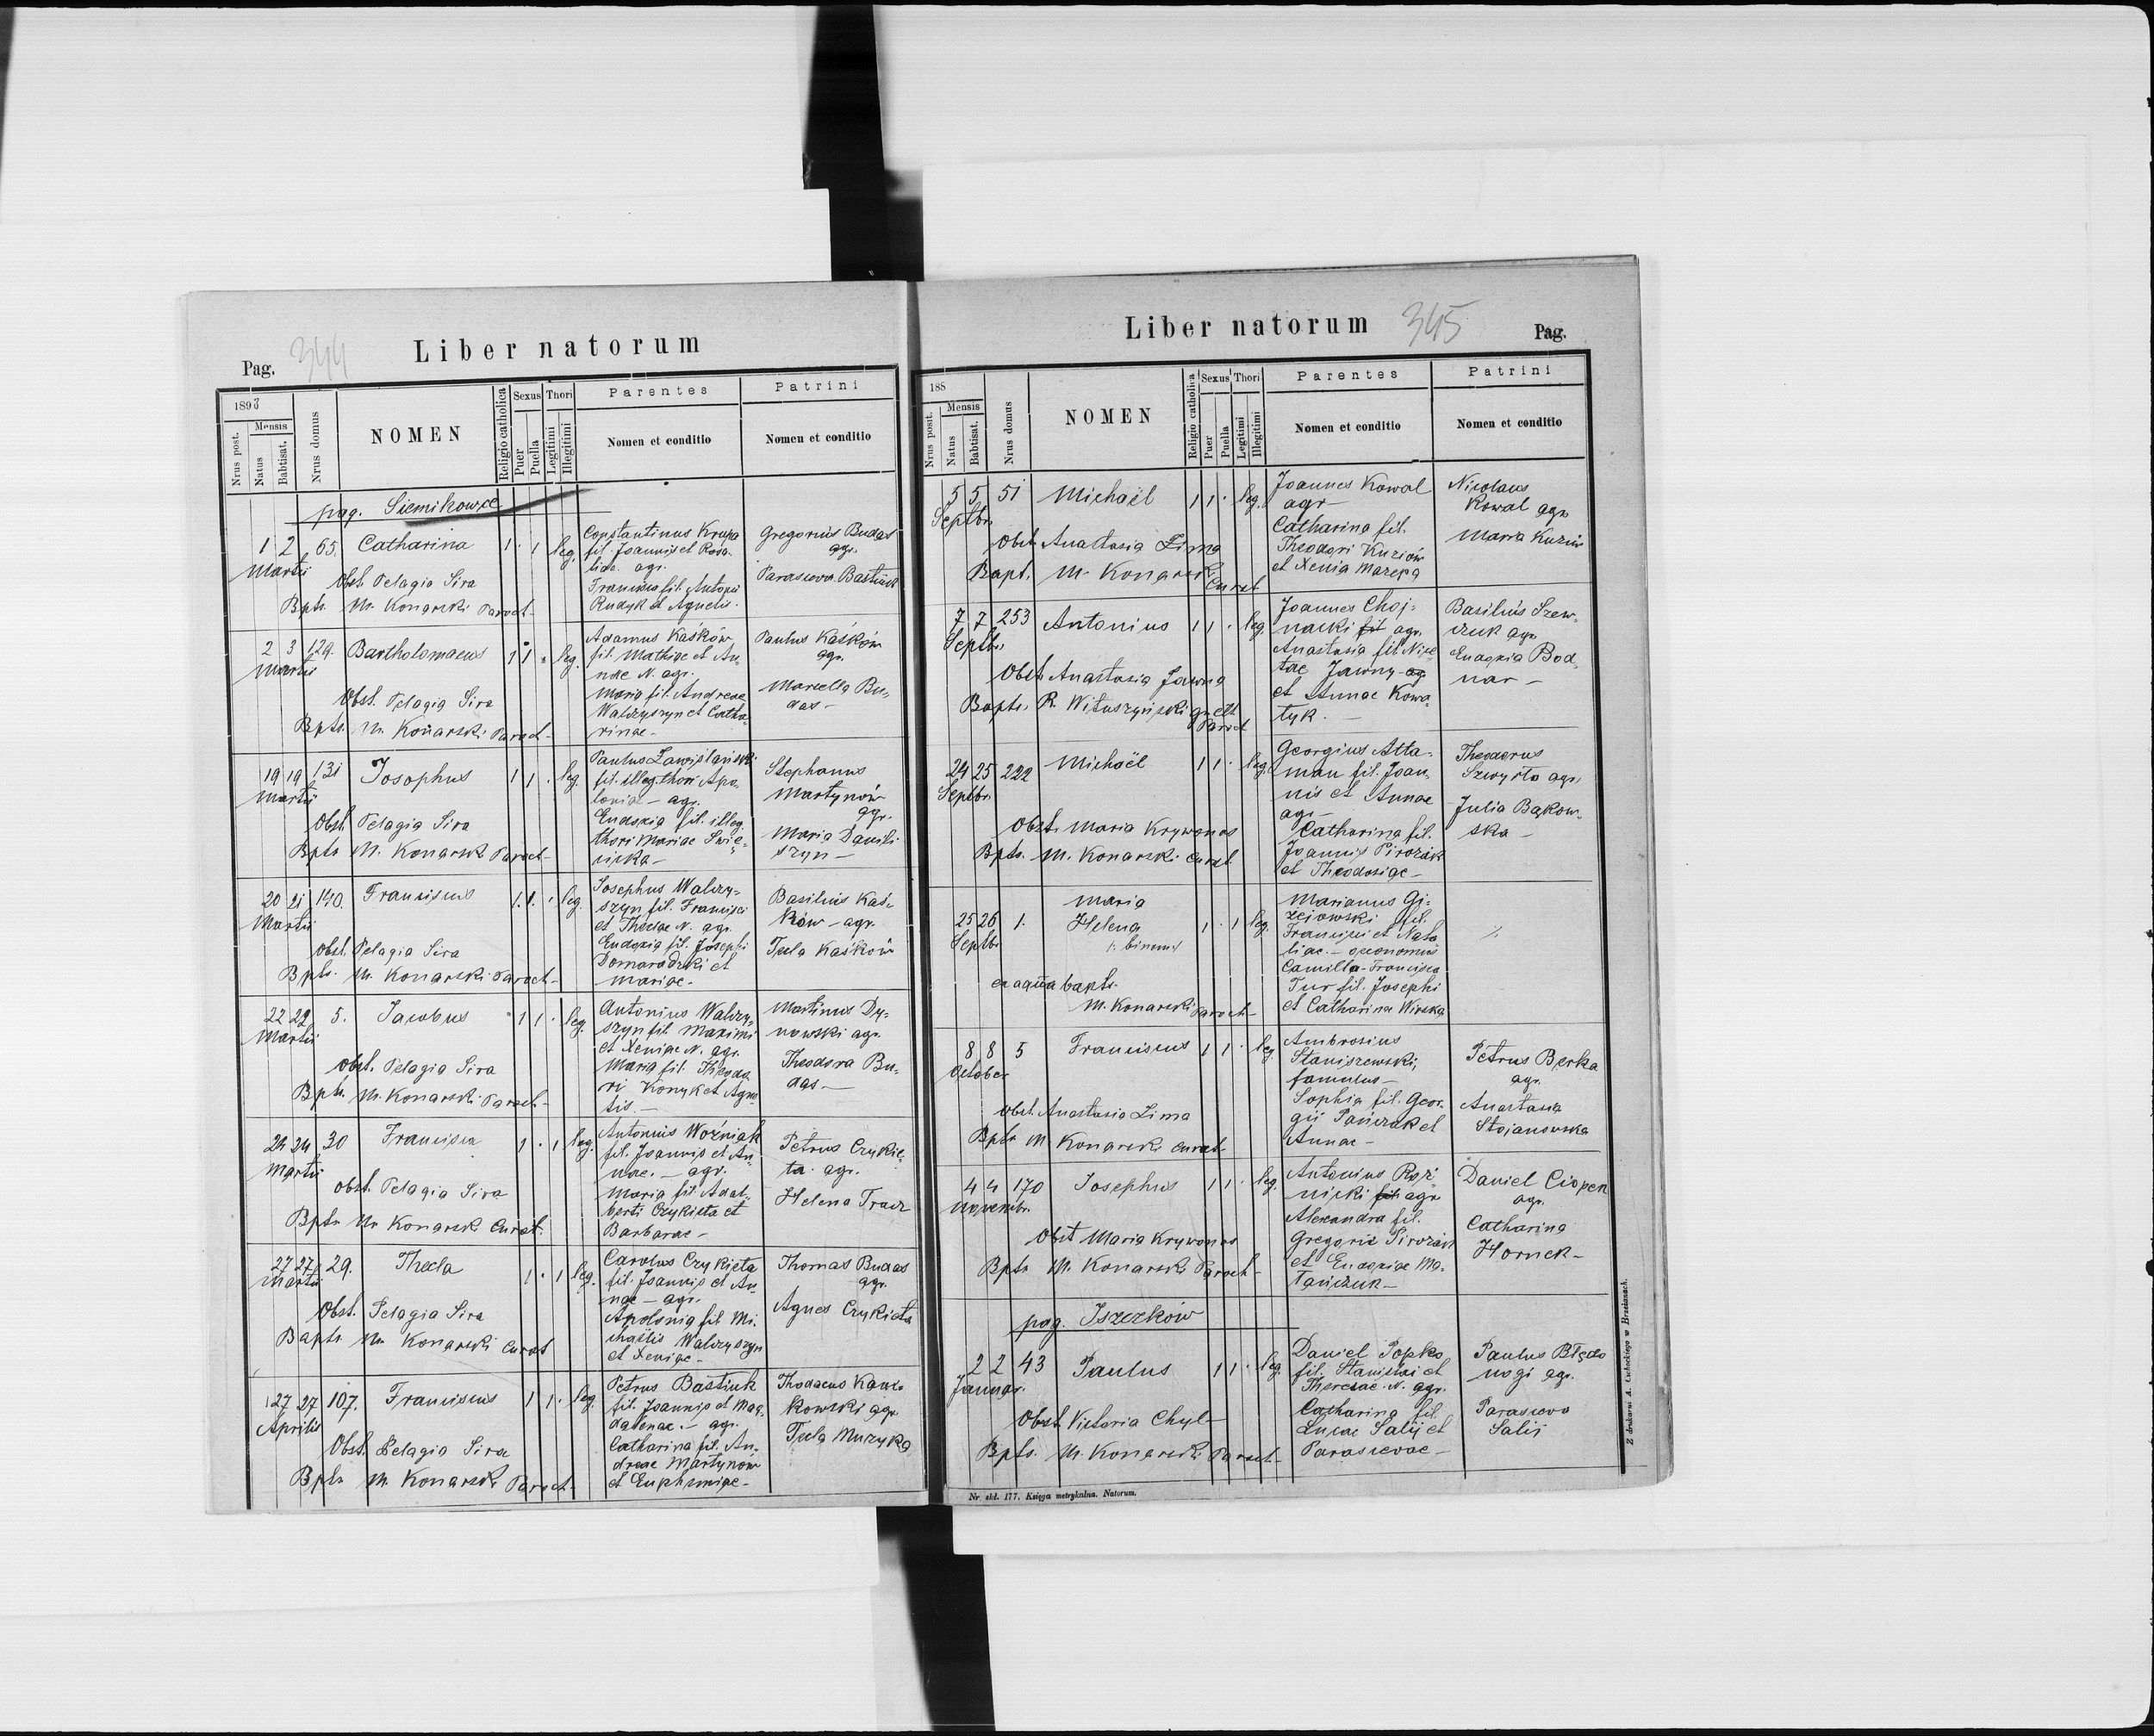 Pag. 344
Liber natorum
1893
Nrus post.
Mensis
Natus
Babtisat.
Nrus domus
NOMEN
Religio catholica
Sexus
Puer
Puella
Thori
Legitimi
Illegitimi
Parentes
Nomen et conditio
Patrini
Nomen et conditio
pag. Siemikowce
1 2 65. Catharina 1 . 1 leg.
Martii
Obst. Pelagia Sira
Bpts. M. Konarski Paroch-
Constantinus Krupa
fil. Joannis et Rosa-
liae. agr.
Francisca fil. Antonii
Rudyk et Agnetis.
Gregorius Budas
agr.
Parasceva Bastiuk
2 3 129. Bartholomaeus 1 1 . leg.
Martii
Obst. Pelagia Sira
Bpts. M. Konarski Paroch-
Adamus Kaśków
fil. Mathiae et An-
nae N. agr.
Maria fil. Andreae
Walczyszyn et Catha-
rinae-
Paulus Kaśków
agr.
Marcella Bu-
das-
19 19 131 Josephus 1 1 . leg.
Martii
Obst. Pelagia Sira
Bpts M. Konarski Paroch-
Paulus
fil. illeg. thori Apo-
loniae - agr.
Eudoxia fil. illeg.
thori Mariae Swię-
cicka-
Stephanus
Martynów
agr.
Maria Danili
szyn-
20 21 140. Franciscus 1. 1. . leg.
Martii
Obst. Pelagia Sira
Bpts. M. Konarski Paroch-
Josephus Walczy-
szyn fil. Francisci
et Theclae N. agr.
Eudoxia fil. Josephi
Domaradzki et
Mariae.
Basilius Kaś-
ków - agr.
Tecla Kaśków
22 22 5. Jacobus 1 1 . leg.
Martii
Obst. Pelagia Sira
Bpts. M. Konarski Paroch-
Antonius Walczy-
szyn fil. Maximi
et Xeniae N. agr.
Maria fil. Theodo
ri Konyk et Agne
tis.-
Martinus Dy-
nowski agr.
Theodora Bu-
das-
24 24 30 Francisca 1 . 1 leg.
Martii
Obst. Pelagia Sira
Bpts M. Konarski Curat.
Antonius Woźniak
fil. Joannis et An-
nae. - agr.
Maria fil. Adal-
berti Czykieta et
Barbarae-
Petrus Czykie-
ta. agr.
Helena Tracz
27 27 29. Thecla 1 . 1 leg.
Martii
Obst. Pelagia Sira
Bapts M. Konarski Curat
Carolus Czykieta
fil. Joannis et An-
nae - agr.
Apolonia fil. Mi-
chaëlis Walczyszyn
et Xeniae-
Thomas Budas
agr.
Agnes Czykieta
27 27 107. Franciscus 1 1 . leg.
Aprilis
Obst. Pelagia Sira
Bpts M. Konarski Paroch-
Petrus Bastiuk
fil. Joannis et Mag-
dalenae. - agr.
Catharina fil. An-
dreae Martynow
et Euphemiae-
kowski agr.
Tecla Muzyka
Liber natorum
345 Pag.
188
Nrus post.
Mensis
Natus
Babtisat.
Nrus domus
NOMEN
Religio catholica
Sexus
Puer
Puella
Thori
Legitimi
Illegitimi
Parentes
Nomen et conditio
Patrini
Nomen et conditio
5 5 51 Michaël 1 1 . leg.
Septbr.
Obst. Anastasia Zima
Bapt. M. Konarski Curat
Joannes Kowal
agr-
Catharina fil.
Theodori Kuziów
et Xenia Mazepa
Nicolaus
Kowal agr.
Maria Kuziów
7 7 253 Antonius 1 1 . leg.
Septbr.
Obst. Anastasia Jawna
Bapts. R. Wituszyński gr. cth
Paroch
Joannes Choj-
nacki fil agr.
Anastasia fil. Nice-
tae Jawny ag
et Annae Kowa-
tyk.-
Basilius Szew-
czuk agr.
Eudoxia Bod-
nar-
24 25 222 Michaël 1 1 . leg.
Septbr.
Obst. Maria Krywonos
Bpts. M. Konarski Curat
Georgius Atta-
man fil. Joan-
nis et Annae
agr-
Catharina fil.
Joannis Pirożak
et Theodosiae-
Theodorus
Szwyrta agr.
Julia Bąkow-
ska-
25 26 1. Maria
Helena 1 . 1 leg.
Septbr. 1. binums
ex aqua bapts.
M. Konarski Paroch-
Marianus Gi-
zejowski fil.
Francisci et Nata
liae. - oeconomus
Camilla-Francisca
Tur fil. Josephi
et Catharina Wirska
8 8 5 Franciscus 1 1 . leg.
October
Obst. Anastasia Zima
Bpts M. Konarski Curat
Ambrosius
Staniszewski,
famulus-
Sophia fil. Geor-
gii Pańczak et
Annae-
Petrus Berka
agr.
Anastasia
Stojanowska
4 4 170 Josephus 1 1 . leg.
Novembr.
Obst Maria Krywonos
Bpts M. Konarski Paroch-
Antonius Roż
nicki fil agr
Alexandra fil.
Gregorii Pirożak
et Eudoxiae Ma-
tańczuk-
Daniel Ciopen
agr.
Catharina
Hornek-
pag. Iszczków
2 2 43 Paulus 1 1 . leg.
Januar.
Obst Victoria Chyl-
Bpts. M. Konarski Paroch-
Daniel Popko
fil. Stanislai et
Theresae N. agr.
Catharina fil.
Lucae Salij et
Parascevae-
Paulus Błędo
nogi agr.
Parasceva
Salij
Nr. skł. 177. Księga metrykalna. Natorum.
Z drukarni A. Cichockiego w Brzeżanach.